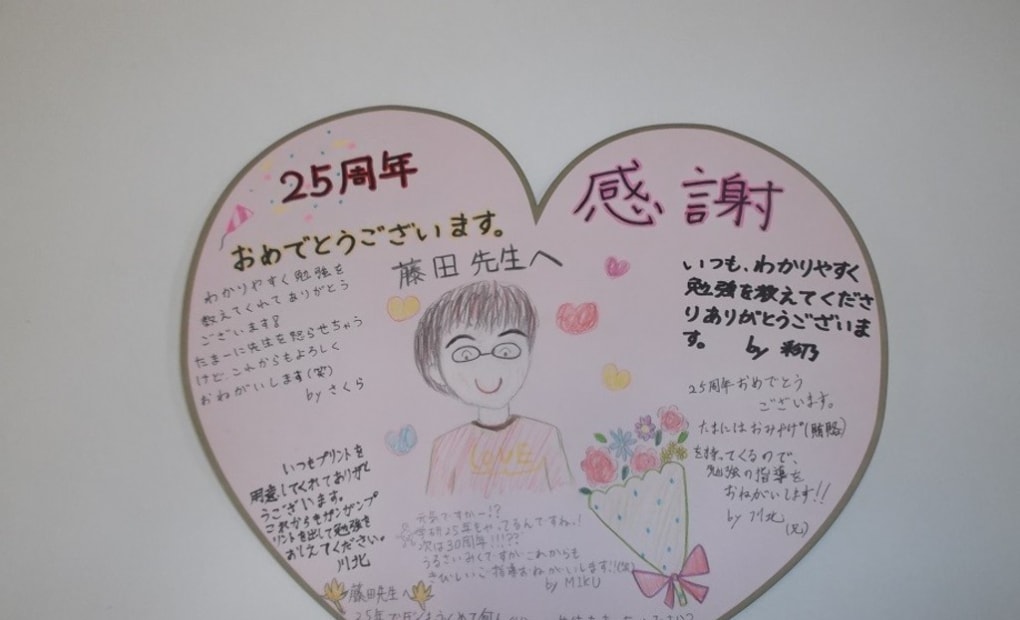 25周年
おめでとうございます。
感謝
藤田先生へ
わかりやすく勉強を
教えてくれてありがとう
ございます!
たまーに先生を怒らせちゃう
けど、これからもよろしく
おねがいします(笑)
by さくら
いつも、わかりやすく
勉強を教えてくださ
りありがとうございま
す。 by 彩乃
25周年おめでとう
ございます。
たまにはおみやげ(賄賂)
を持ってくるので、
勉強の指導を
おねがいします!!
by 川北
(兄)
LOVE
いつもプリントを
用意してくれてありがと
うございます。
これからもガンガンプ
リントを出して勉強を
おしえてください。
川北
元気ですかー!?
学研25年もやってるんですね、!
次は30周年!!!??
うるさいみくですがこれからも
きびしいご指導おねがいします!!(笑)
by MIKU
藤田先生へ
25年で